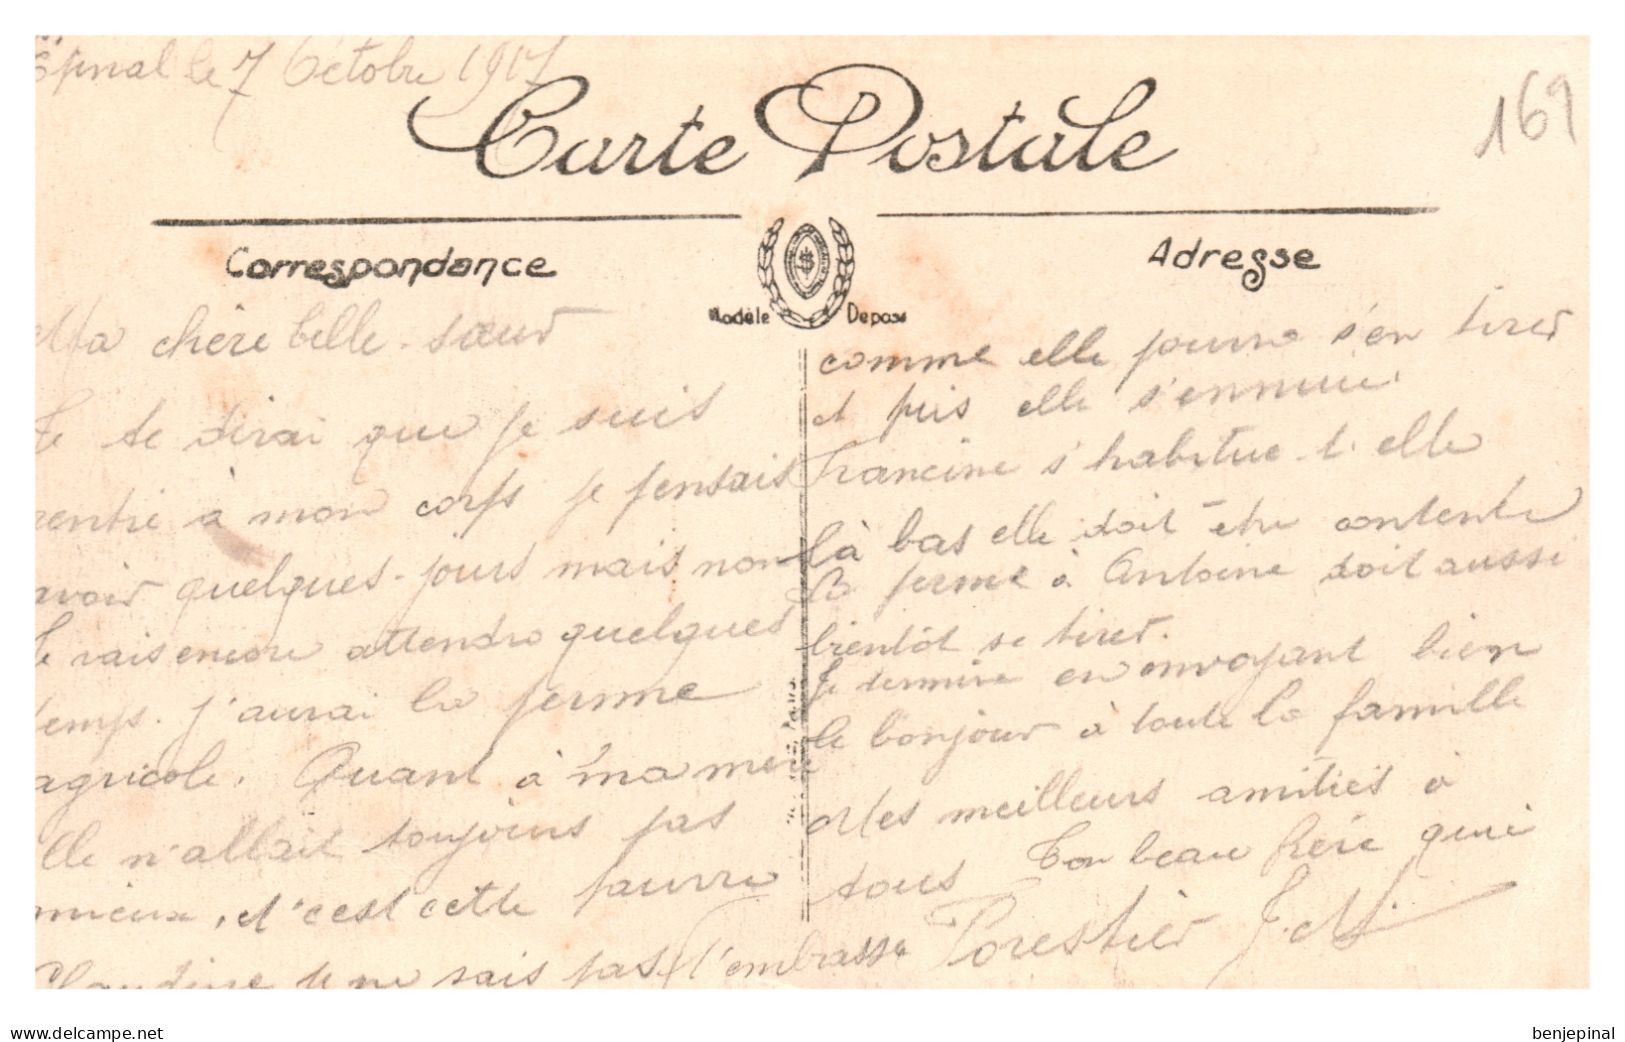 Epinal le 7 Octobre 1917
169
Carte Postale
Correspondance
Adresse
Modèle Déposé
Ma chère belle-sœur
Je te dirai que je suis
rentré à mon corps je pensais
avoir quelques-jours mais non
Je vais encore attendre quelques
temps. J'aurai la ferme
agricole. Quant à ma mère
elle n'allait toujours pas
mieux, et c'est cette pauvre
Claudine je ne sais pas
comme elle pourra s'en tirer
et puis elle s'ennuie.
Francine s'habitue-t-elle
là bas elle doit être contente
La ferme à Antoine doit aussi
bientôt se tirer.
Je termine en envoyant bien
le bonjour à toute la famille
Mes meilleurs amitiés à
tous Ton beau frère qui
t'embrasse Forestier J.M.
delcampe.net
benjepinal